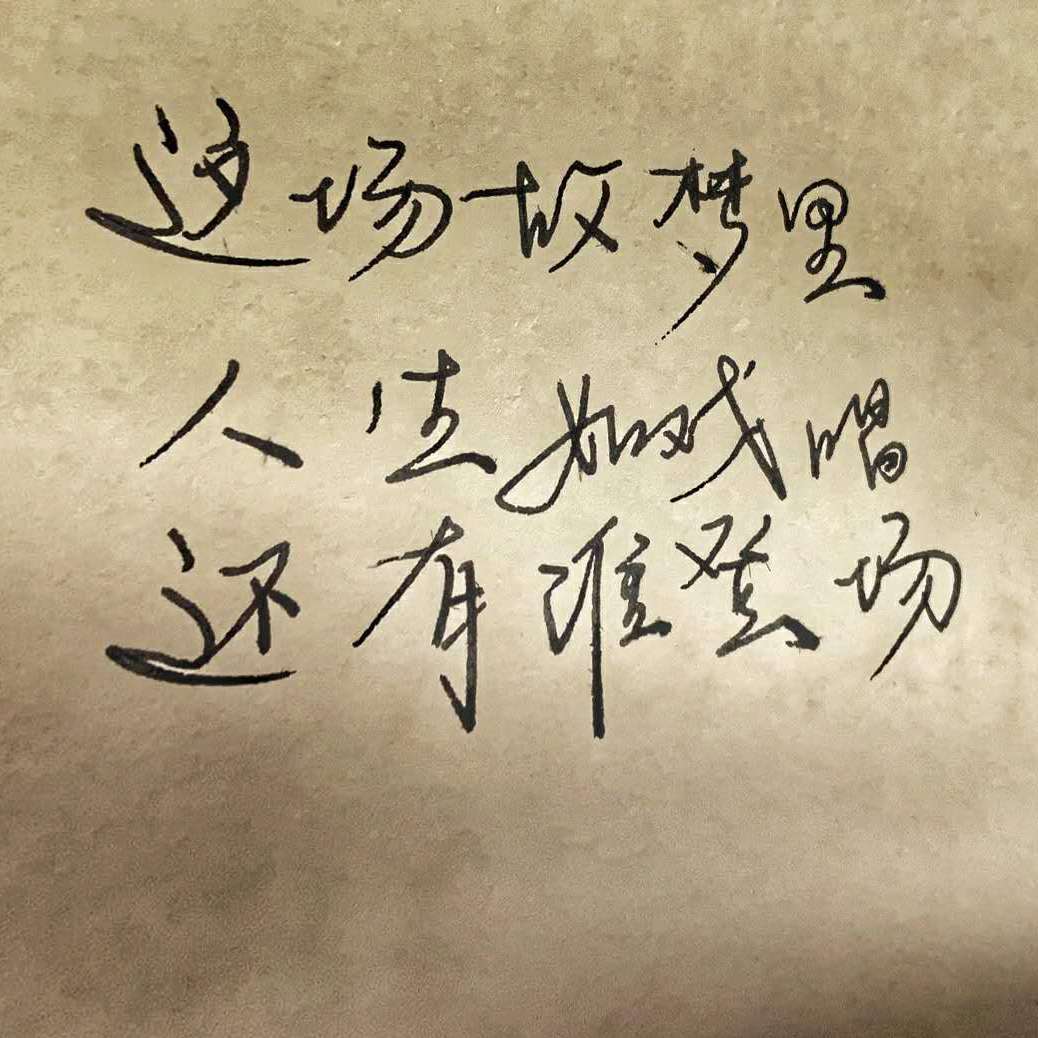 这场故梦里
人生如戏唱
还有谁登场